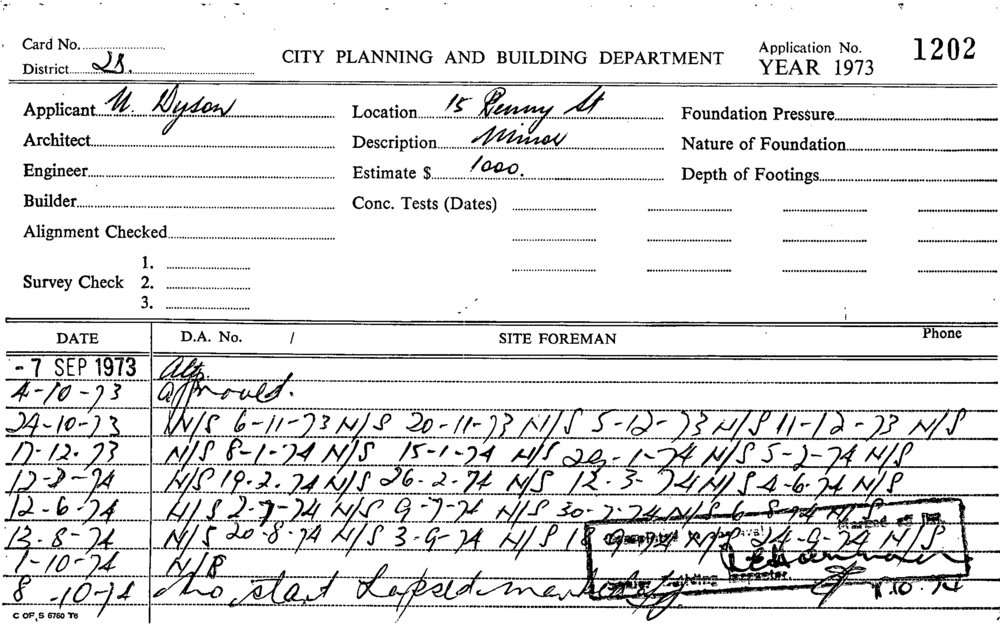 Card No.
District 2B.
CITY PLANNING AND BUILDING DEPARTMENT
Application No. 1202
YEAR 1973
Applicant Dyson
Location 15 Penny St
Foundation Pressure
Architect
Description Minor
Nature of Foundation
Engineer
Estimate $ 1000.
Depth of Footings
Builder
Conc. Tests (Dates)
Alignment Checked
Survey Check 1.
2.
3.
DATE D.A. No. / SITE FOREMAN Phone
-7 SEP 1973 Alts.
4-10-73 approved.
24-10-73 N/S 6-11-73 N/S 20-11-73 N/S 5-12-73 N/S 11-12-73 N/S
17-12-73 N/S 8-1-74 N/S 15-1-74 N/S 29-1-74 N/S 5-2-74 N/S
12-2-74 N/S 19-2-74 N/S 26-2-74 N/S 12-3-74 N/S 4-6-74 N/S
12-6-74 N/S 2-7-74 N/S 9-7-74 N/S 30-7-74 N/S 6-8-74 N/S
13-8-74 N/S 20-8-74 N/S 3-9-74 N/S 18 24-9-74 N/S
1-10-74 N/S
8-10-74 no start Lapsed
Building Inspector
.10.74
C OF S 6760 T6